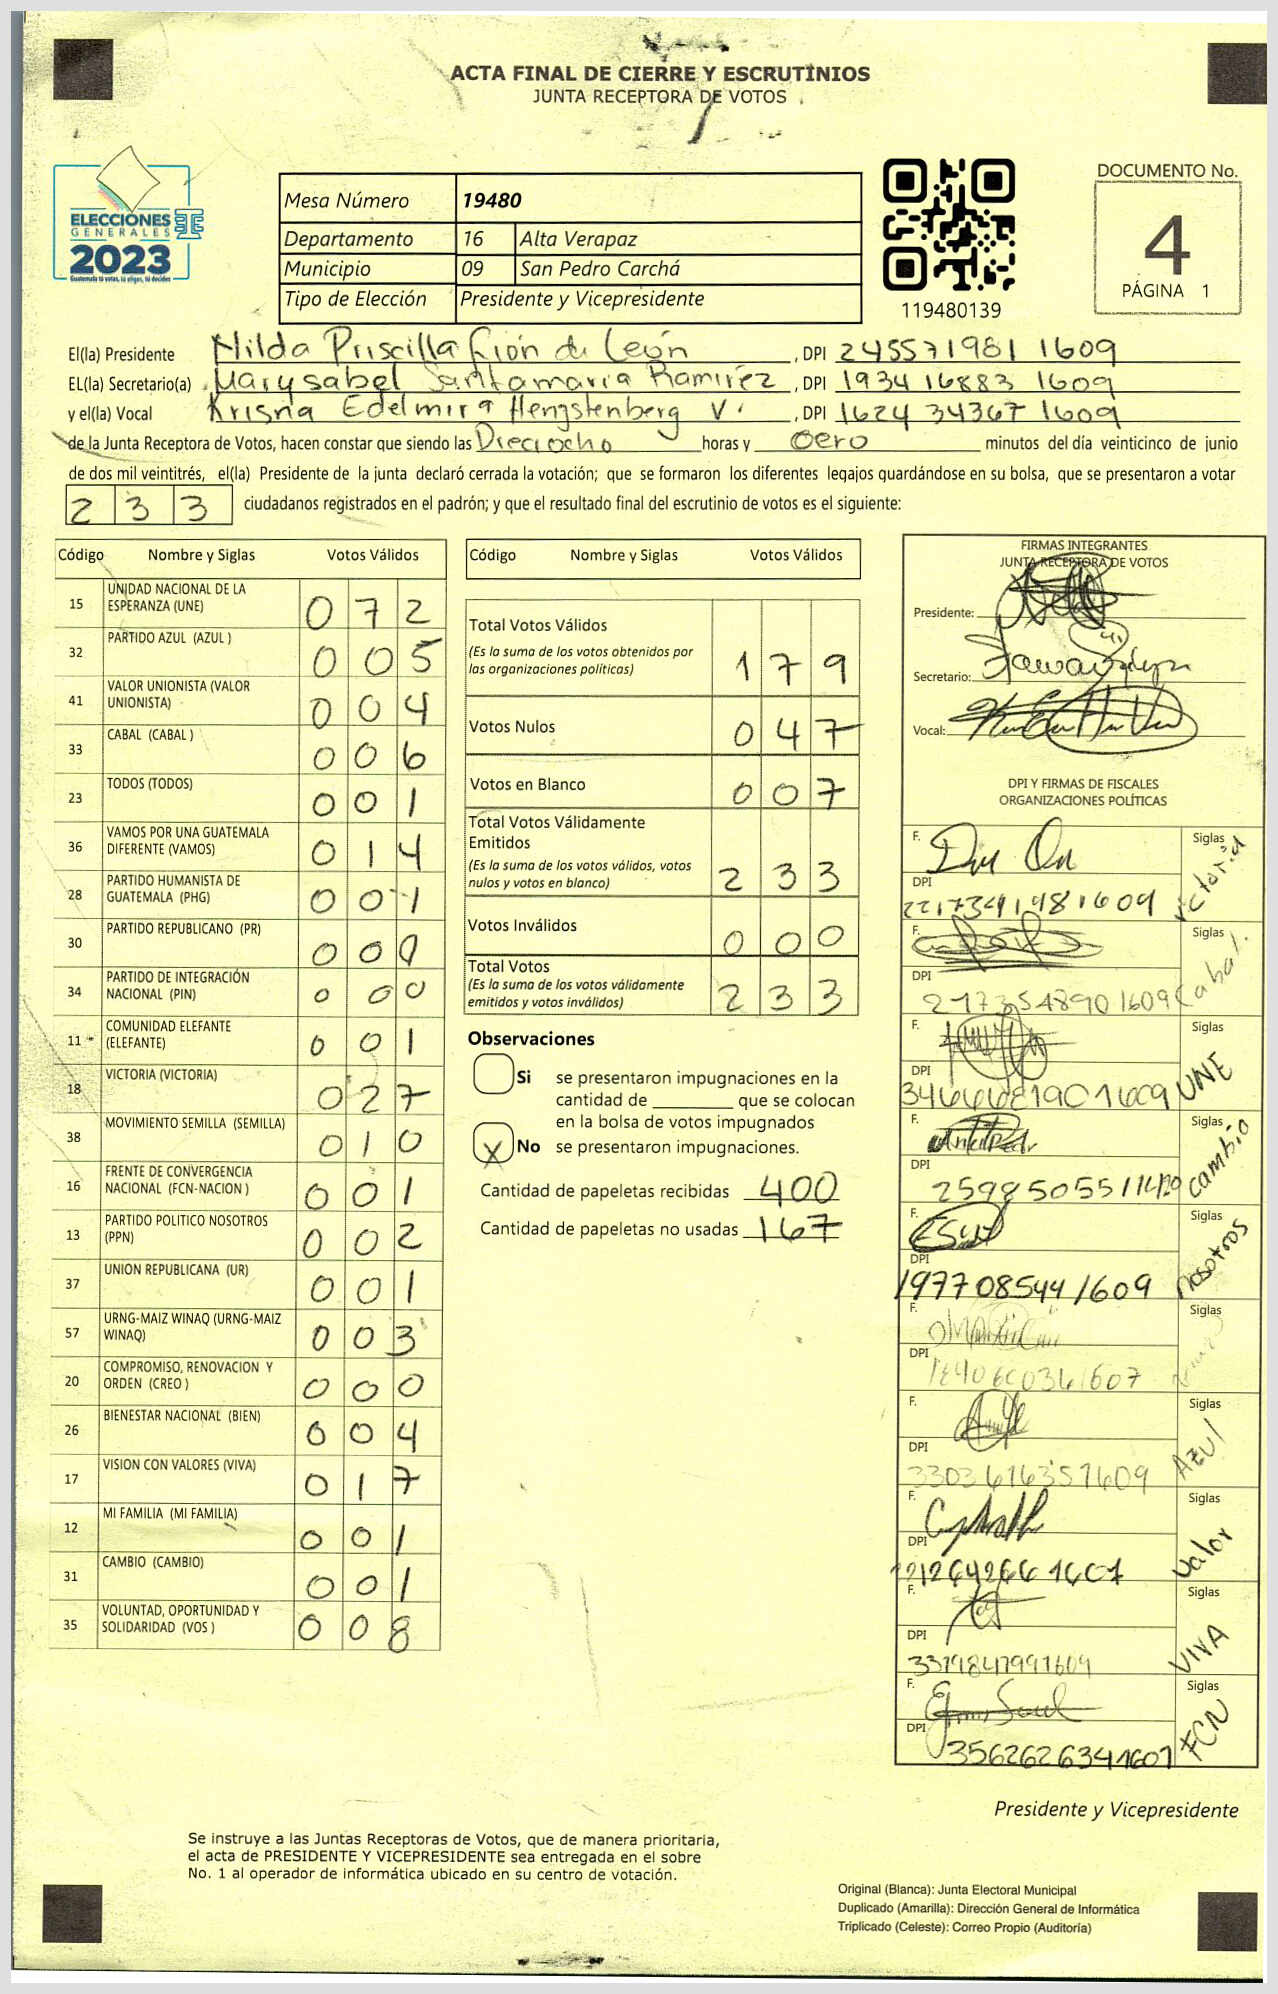 ACTA FINAL DE CIERRE Y ESCRUTINIOS
JUNTA RECEPTORA DE VOTOS
ELECCIONES
GENERALES
2023
Guatemala tú votas, tú eliges, tú decides
Mesa Número 19480
Departamento 16 Alta Verapaz
Municipio 09 San Pedro Carchá
Tipo de Elección Presidente y Vicepresidente
119480139
DOCUMENTO No.
4
PÁGINA 1
El(la) Presidente Hilda Priscilla Gión de León , DPI 245571981 1609
EL(la) Secretario(a) Marysabel Santamaria Ramirez , DPI 193416883 1609
y el(la) Vocal Krisna Edelmira Hengstenberg V. , DPI 1624 34367 1609
de la Junta Receptora de Votos, hacen constar que siendo las Dieciocho horas y cero minutos del día veinticinco de junio
de dos mil veintitrés, el(la) Presidente de la junta declaró cerrada la votación; que se formaron los diferentes legajos guardándose en su bolsa, que se presentaron a votar
233 ciudadanos registrados en el padrón; y que el resultado final del escrutinio de votos es el siguiente:
Código Nombre y Siglas Votos Válidos
15 UNIDAD NACIONAL DE LA ESPERANZA (UNE) 072
32 PARTIDO AZUL (AZUL ) 005
41 VALOR UNIONISTA (VALOR UNIONISTA) 004
33 CABAL (CABAL ) 006
23 TODOS (TODOS) 001
36 VAMOS POR UNA GUATEMALA DIFERENTE (VAMOS) 014
28 PARTIDO HUMANISTA DE GUATEMALA (PHG) 001
30 PARTIDO REPUBLICANO (PR) 000
34 PARTIDO DE INTEGRACIÓN NACIONAL (PIN) 000
11 COMUNIDAD ELEFANTE (ELEFANTE) 001
18 VICTORIA (VICTORIA) 027
38 MOVIMIENTO SEMILLA (SEMILLA) 010
16 FRENTE DE CONVERGENCIA NACIONAL (FCN-NACION ) 001
13 PARTIDO POLITICO NOSOTROS (PPN) 002
37 UNION REPUBLICANA (UR) 001
57 URNG-MAIZ WINAQ (URNG-MAIZ WINAQ) 003
20 COMPROMISO, RENOVACION Y ORDEN (CREO ) 000
26 BIENESTAR NACIONAL (BIEN) 004
17 VISION CON VALORES (VIVA) 017
12 MI FAMILIA (MI FAMILIA) 001
31 CAMBIO (CAMBIO) 001
35 VOLUNTAD, OPORTUNIDAD Y SOLIDARIDAD (VOS ) 008
Código Nombre y Siglas Votos Válidos
Total Votos Válidos 179
(Es la suma de los votos obtenidos por
las organizaciones políticas)
Votos Nulos 047
Votos en Blanco 007
Total Votos Válidamente
Emitidos 233
(Es la suma de los votos válidos, votos
nulos y votos en blanco)
Votos Inválidos 000
Total Votos 233
(Es la suma de los votos válidamente
emitidos y votos inválidos)
Observaciones
Si se presentaron impugnaciones en la
cantidad de ________ que se colocan
en la bolsa de votos impugnados
X No se presentaron impugnaciones.
Cantidad de papeletas recibidas 400
Cantidad de papeletas no usadas 167
FIRMAS INTEGRANTES
JUNTA RECEPTORA DE VOTOS
Presidente:
Secretario:
Vocal:
DPI Y FIRMAS DE FISCALES
ORGANIZACIONES POLÍTICAS
F. Siglas
DPI
F. Siglas Cabal.
DPI 2173548901609
F. Siglas UNE
DPI
F. Siglas Cambio
DPI
F. Siglas Nosotros
DPI 1977085441609
F. Siglas
DPI
F. Siglas AZUl
DPI 3303616351609
F. Siglas Valor
DPI
F. Siglas VIVA
DPI
F. Siglas FCN
DPI 3562626341607
Presidente y Vicepresidente
Se instruye a las Juntas Receptoras de Votos, que de manera prioritaria,
el acta de PRESIDENTE Y VICEPRESIDENTE sea entregada en el sobre
No. 1 al operador de informática ubicado en su centro de votación.
Original (Blanca): Junta Electoral Municipal
Duplicado (Amarilla): Dirección General de Informática
Triplicado (Celeste): Correo Propio (Auditoría)